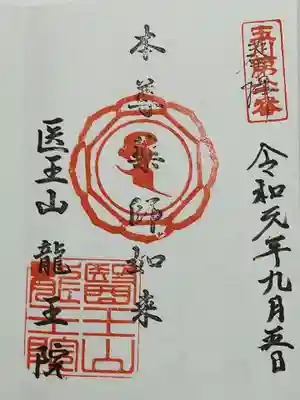 奉拝
令和元年九月五日
本尊薬師如来
医王山 龍王院